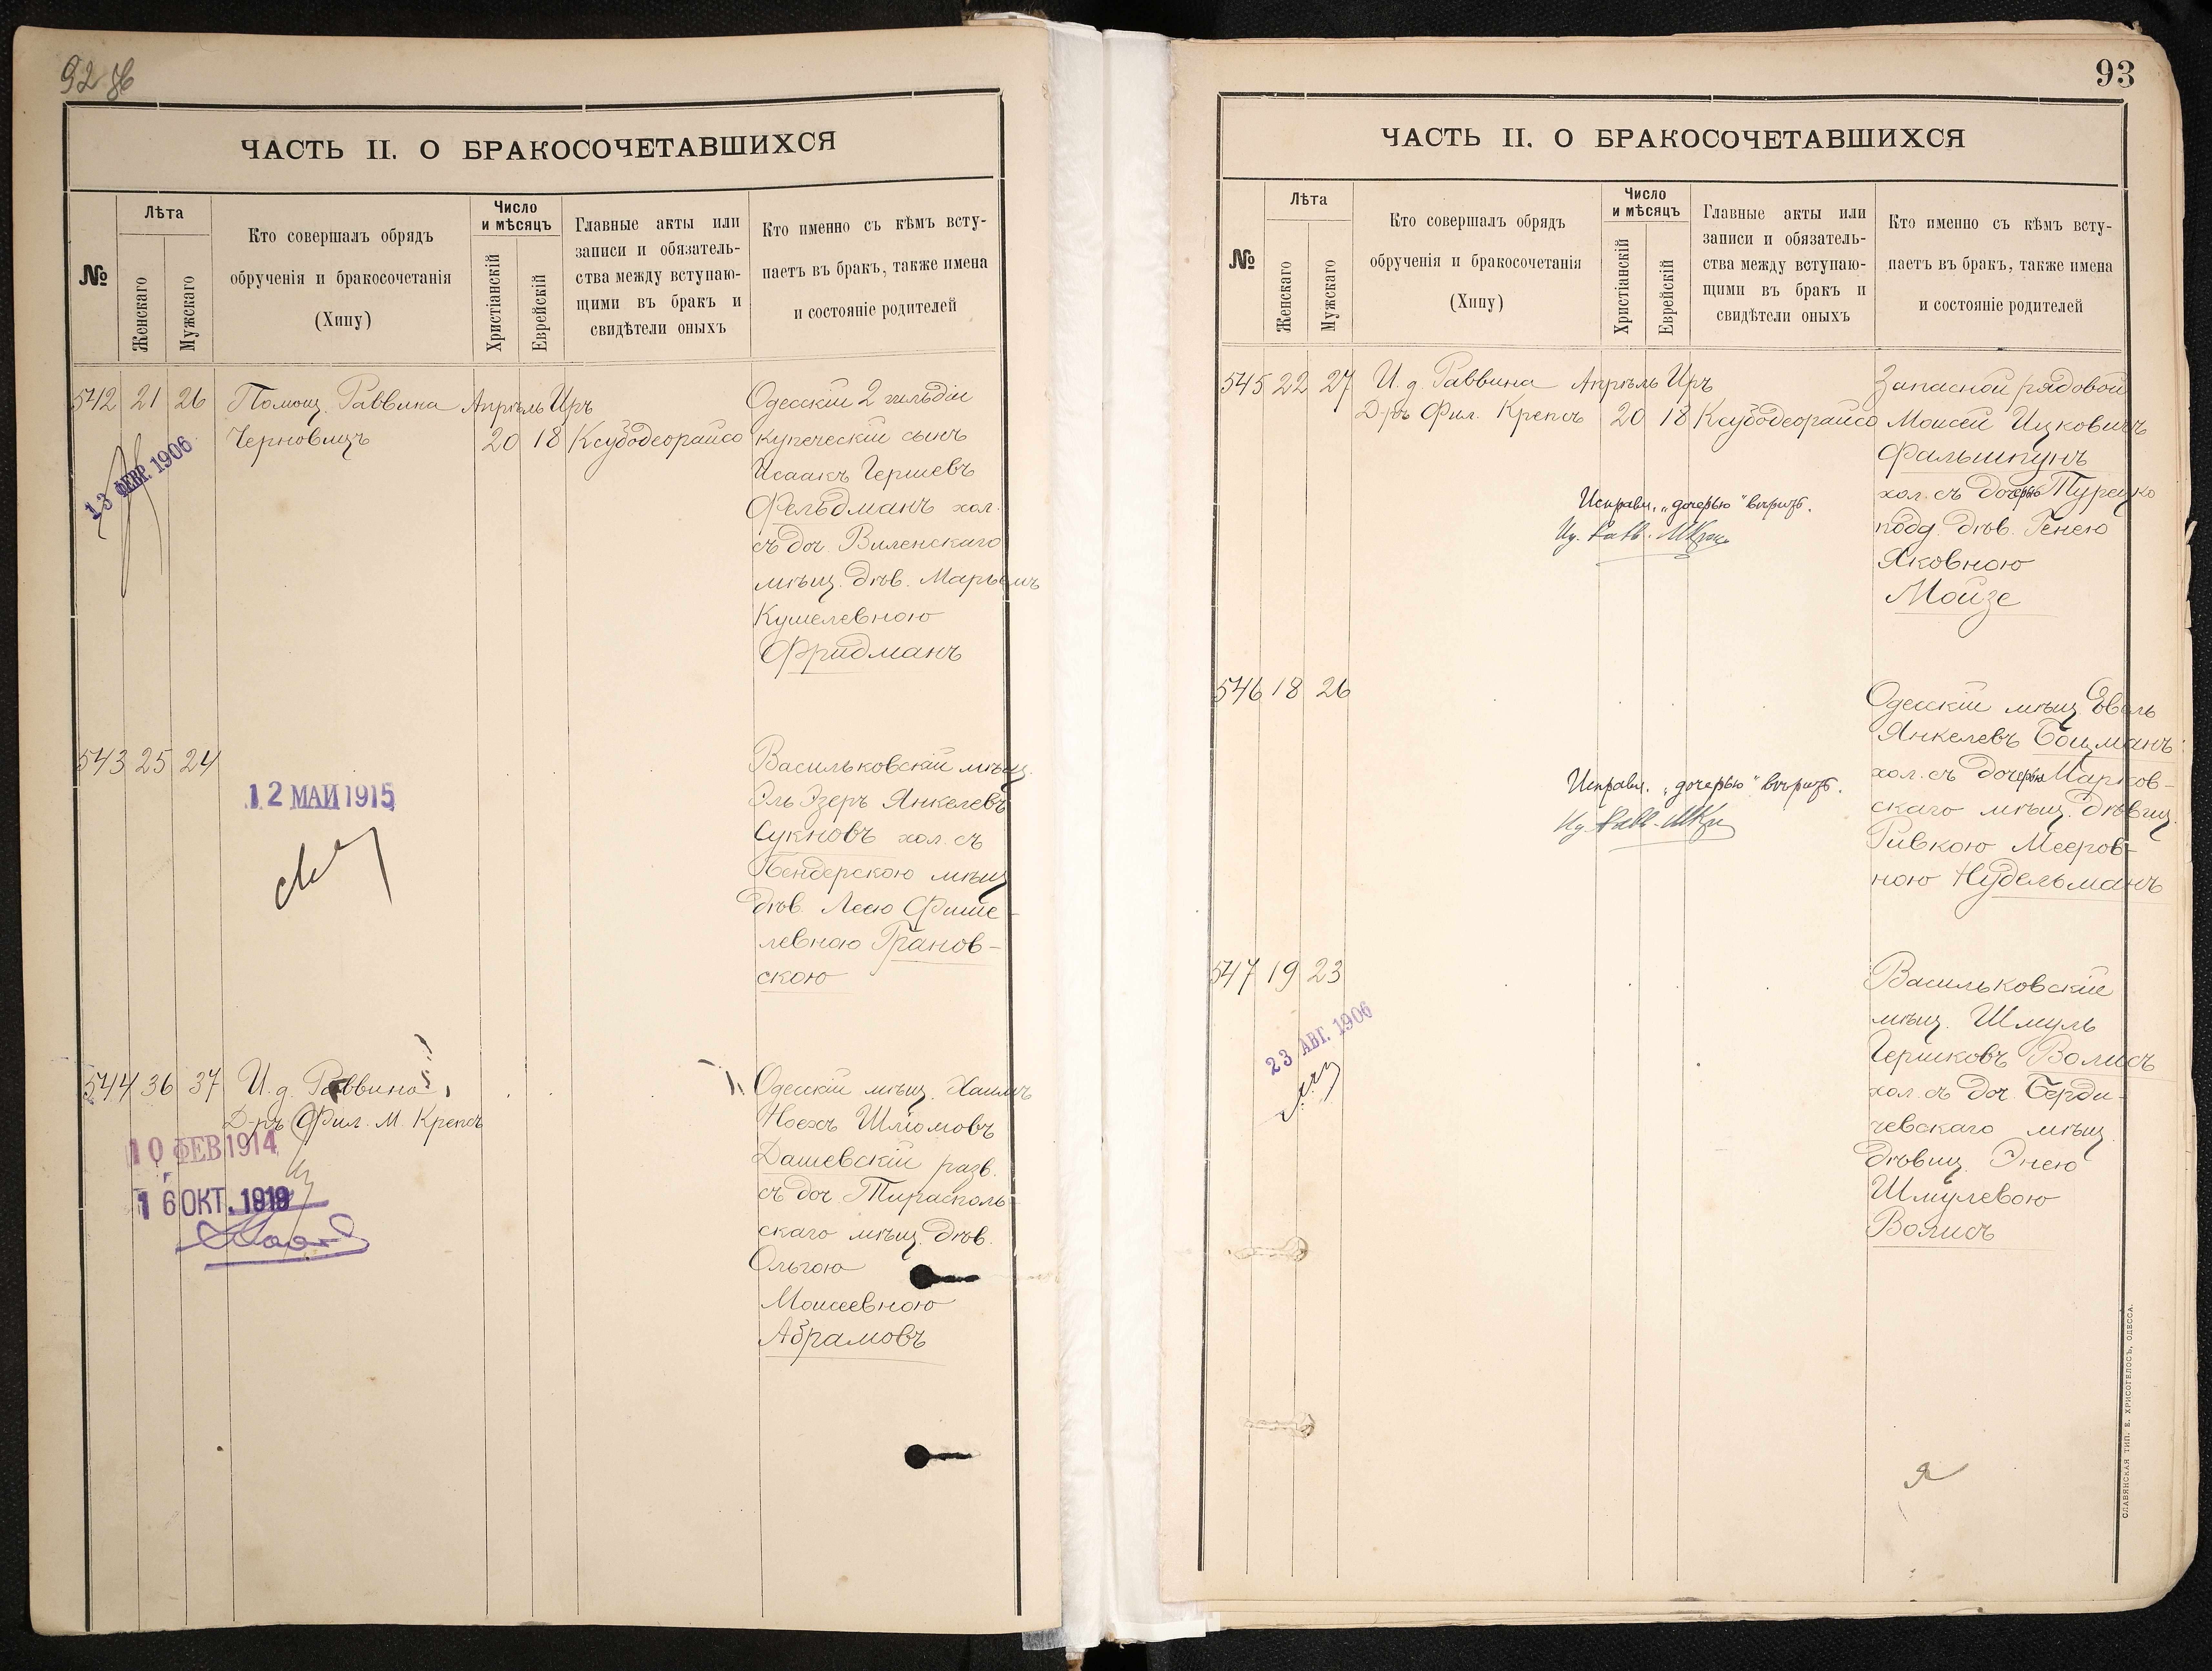 92 об
ЧАСТЬ II. О БРАКОСОЧЕТАВШИХСЯ
№
Лѣта
Женскаго
Мужскаго
Кто совершалъ обрядъ
обрученія и бракосочетанія
(Хипу)
Число
и мѣсяцъ
Христіанскій
Еврейскій
Главные акты или
записи и обязатель-
ства между вступаю-
щими въ бракъ и
свидѣтели оныхъ
Кто именно съ кѣмъ всту-
паетъ въ бракъ, также имена
и состояніе родителей
542 21 26 Помощ. Раввина Апрѣль Иръ
Черновицъ 20 18 Ксубодеорайсо
Одесскій 2 гильдіи
купеческій сынъ
Исаакъ Гершевъ
Фельдманъ хол.
съ доч. Виленскаго
мѣщ. дѣв. Марьемъ
Кушелевною
Фридманъ
13 ФЕВР. 1906
543 25 24
Васильковскій мѣщ.
Эль Эзеръ Янкелевъ
Сукновъ хол. съ
Бендерскою мѣщ.
дѣв. Леею Фише-
левною Гранов-
скою
12 МАИ 1915
544 36 37 И. д. Раввина
Д-ръ Фил. М. Крепсъ
Одесскій мѣщ. Хаимъ
Ноехъ Шліомовъ
Дашевскій разв.
съ доч. Тирасполь-
скаго мѣщ. дѣв.
Ольгою
Моисеевною
Абрамовъ
10 ФЕВ 1914
16 ОКТ. 1919
93
ЧАСТЬ II. О БРАКОСОЧЕТАВШИХСЯ
№
Лѣта
Женскаго
Мужскаго
Кто совершалъ обрядъ
обрученія и бракосочетанія
(Хипу)
Число
и мѣсяцъ
Христіанскій
Еврейскій
Главные акты или
записи и обязатель-
ства между вступаю-
щими въ бракъ и
свидѣтели оныхъ
Кто именно съ кѣмъ всту-
паетъ въ бракъ, также имена
и состояніе родителей
545 22 27 И. д. Раввина Апрѣль Иръ
Д-ръ Фил. Крепсъ 20 18 Ксубодеорайсо
Запасной рядовой
Моисей Ицковичъ
Фальшпунъ
хол. съ дочерью Турецко
подд. дѣв. Генею
Яковною
Мойзе
Исправл. „дочерью" вѣрить.
546 18 26
Одесскій мѣщ. Евель
Янкелевъ Боцманъ
хол. съ дочерью Марков-
скаго мѣщ. дѣвиц.
Ривкою Мееров-
ною Нудельманъ
Исправл. „дочерью" вѣрить.
547 19 23
Васильковскій
мѣщ. Шмуль
Гершковъ Волисъ
хол. съ доч. Берди-
чевскаго мѣщ.
дѣвиц. Энею
Шмулевою
Волисъ
23 АВГ. 1906
СЛАВЯНСКАЯ ТИП. Е. ХРИСОГЕЛОСЪ, ОДЕССА.